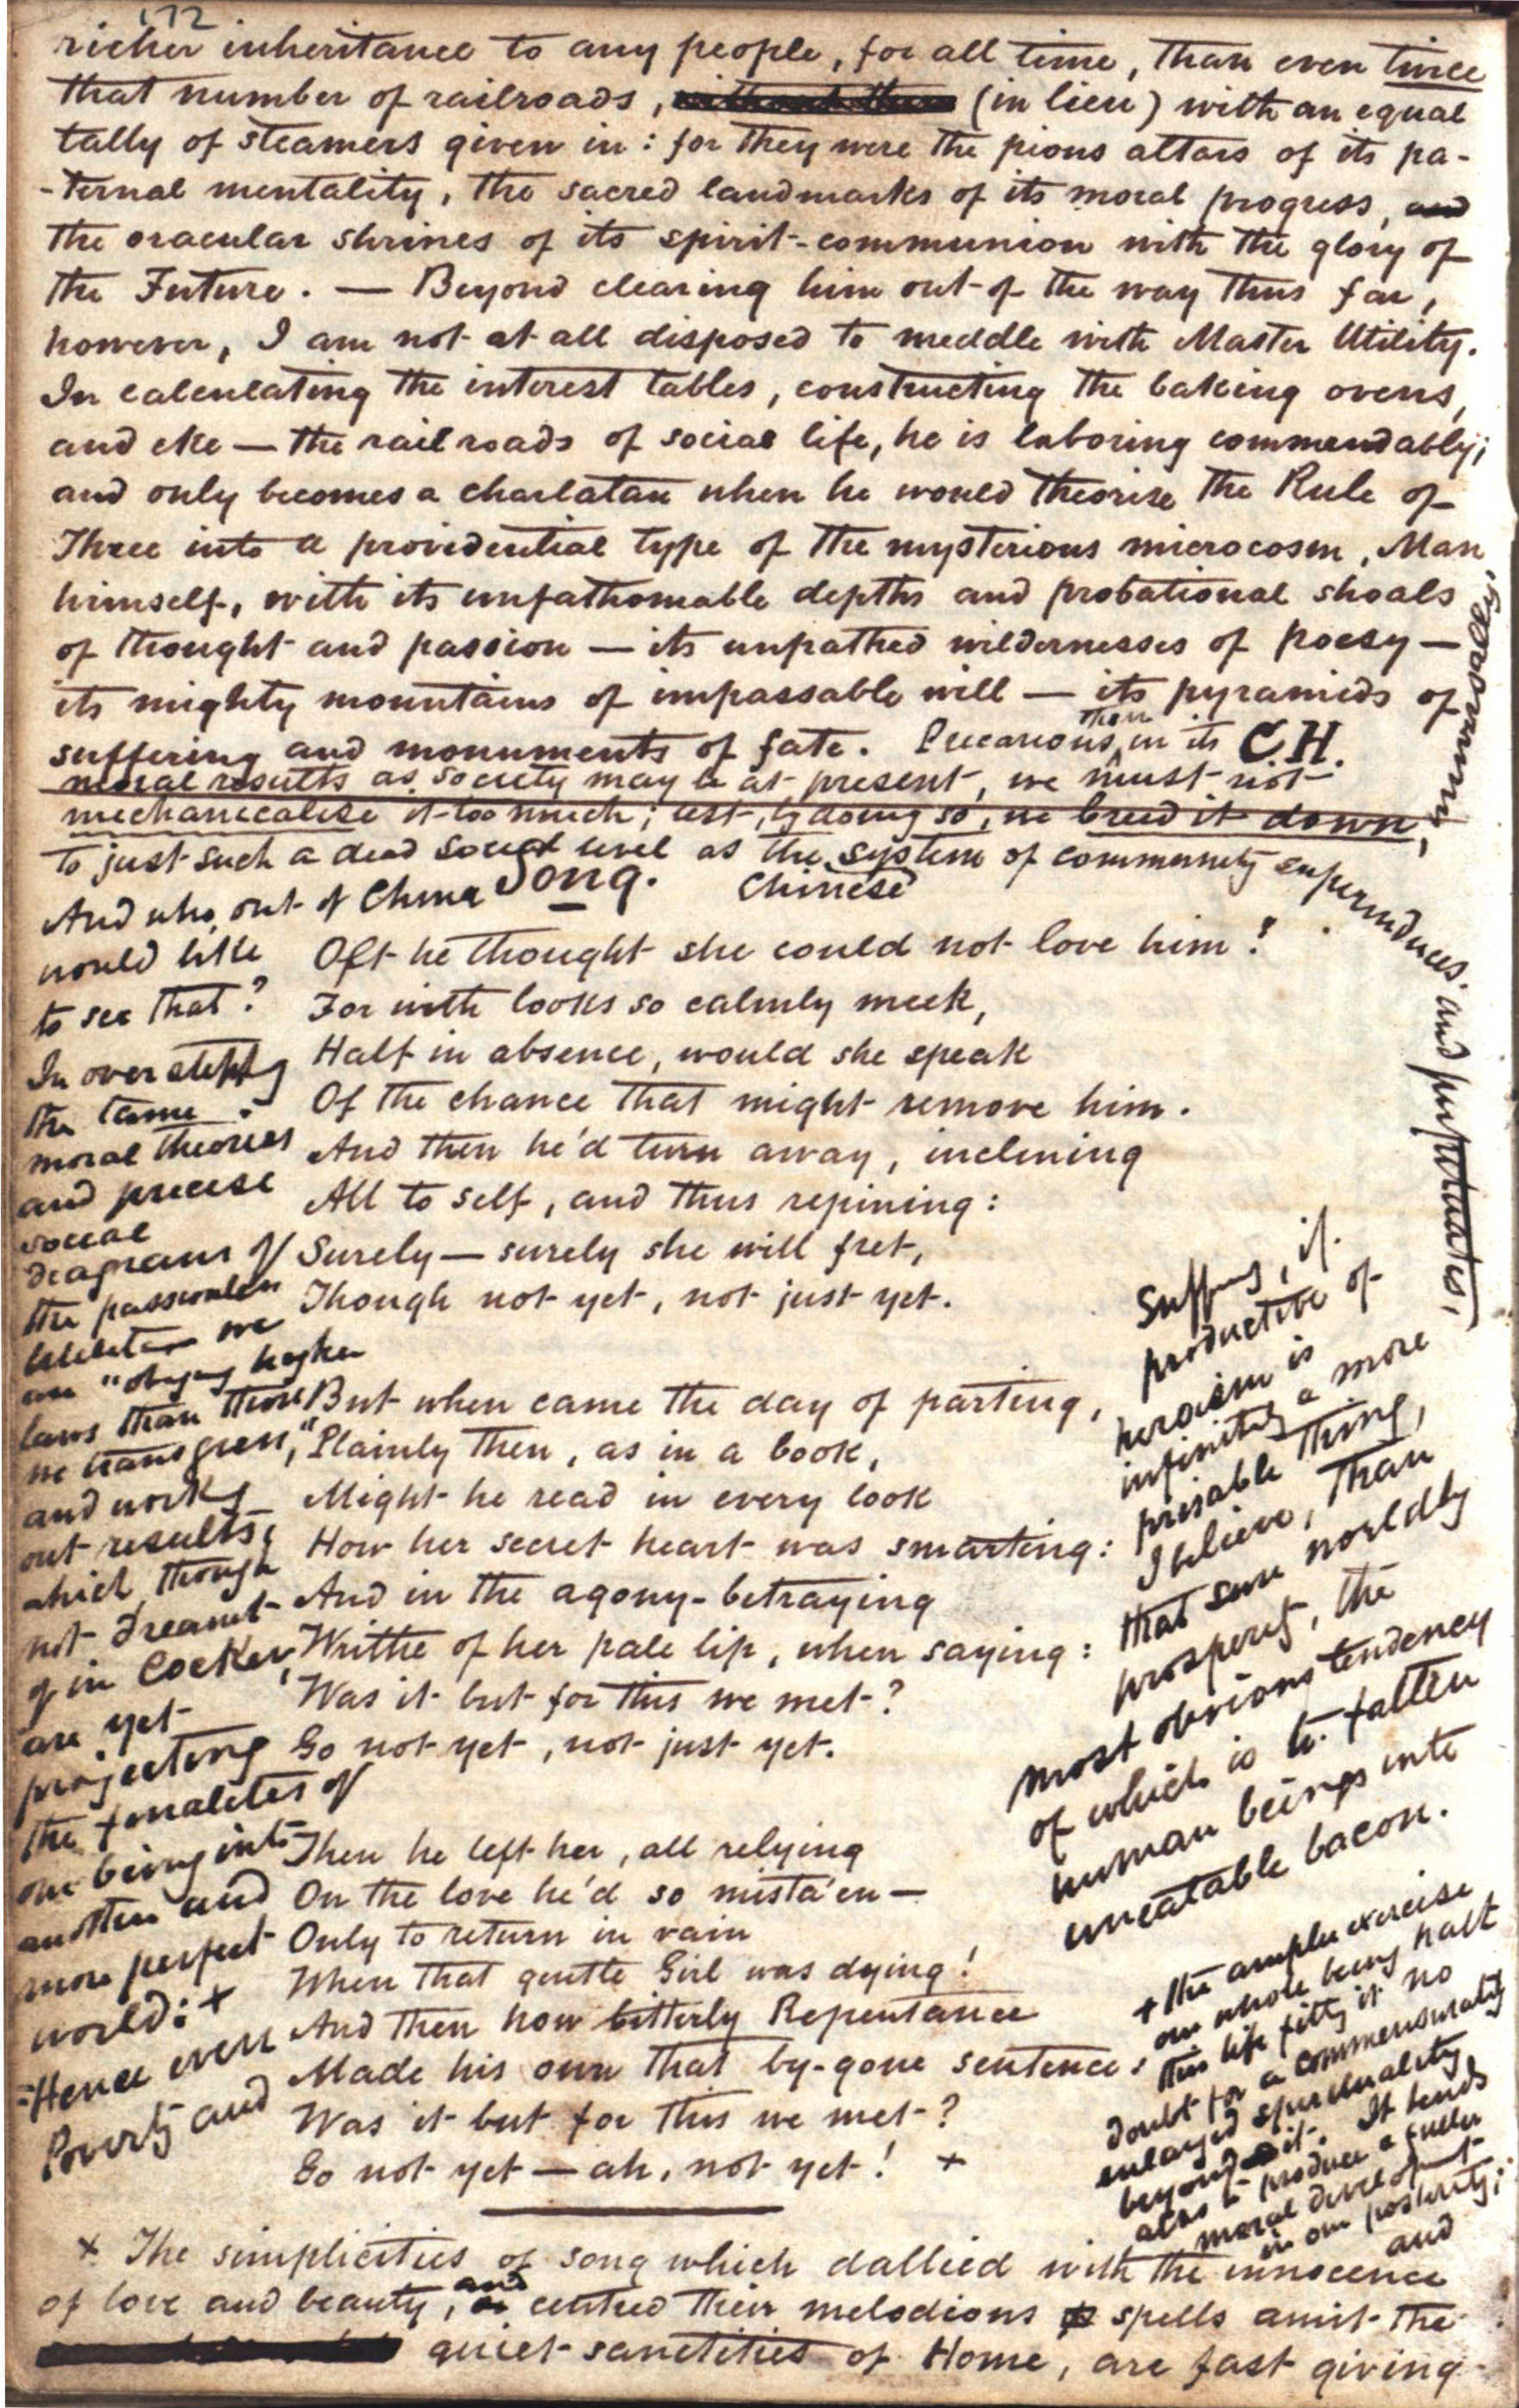 172
richer inheritance to any people, for all time, than even twice
that number of railroads, (in lieu) with an equal
tally of steamers given in: for they were the pious altars of its pa-
-ternal mentality, the sacred landmarks of its moral progress, and
the oracular shrines of its spirit-communion with the glory of
the Future. — Beyond clearing him out of the way thus far,
however, I am not at all disposed to meddle with Master Utility.
In calculating the interest tables, constructing the baking ovens,
and eke — the railroads of social life, he is laboring commendably;
and only becomes a charlatan when he would theorise the Rule of
Three into a providential type of the mysterious microcosm, Man
himself, with its unfathomable depths and probational shoals
of thought and passion — its unpathed wildernesses of poesy —
its mighty mountains of impassable will — its pyramids of
suffering and monuments of fate. C.H.
Precarious, then in its
moral results as society may be at present, we must not
mechanicalise it too much; lest, by doing so, we breed it down,
to just such a dead social level as the Chinese system of community superinduces and perpetuates,
And who, out of China
would like
to see that?
In overstepping
the tame
moral theories
and precise
social
diagrams of
the passionless
we
are "obeying higher
laws than those
we transgress,"
and works
out results,
which, though
not dreamt
of in Cocker,
are yet
projecting
the finalities of
our being into
another and
more perfect
world: +
=Hence even
Poverty and
Song.
Oft he thought she could not love him!
For with looks so calmly meek,
Half in absence, would she speak
Of the chance that might remove him.
And then he'd turn away, inclining
All to self, and thus repining:
Surely — surely she will fret,
Though not yet, not just yet.
But when came the day of parting,
Plainly then, as in a book,
Might he read in every look
How her secret heart was smarting:
And in the agony-betraying
Writhe of her pale lip, when saying:
Was it but for this we met?
Go not yet, not just yet.
Then he left her, all relying
On the love he'd so mista'en —
Only to return in vain
When that gentle Girl was dying!
And then how bitterly Repentance
Made his own that by-gone sentence:
Was it but for this we met?
Go not yet — ah, not yet! +
Suffering, if
productive of
heroism is
infinitely a more
prisable thing,
I believe, than
that sure worldly
prosperity, the
most obvious tendency
of which is to fatten
human beings into
uneatable bacon.
+ the ampler exercise
our whole being hath
this life fitting it no
doubt for a commensurately
enlarged spirituality
beyond it. It tends
also to produce a fuller
moral development
in our posterity;
and
+ The simplicities of song which dallied with the innocence
of love and beauty, and centred their melodious spells amit the
quiet sanctities of Home, are fast giving